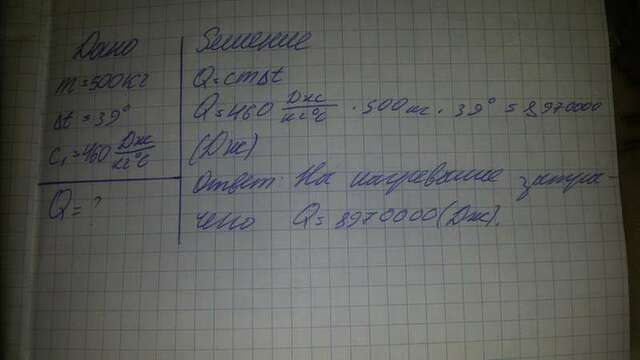 Дано
m=500кг
Δt=39°
C₁=460 Дж/кг°C
Q=?
Решение
Q=cmΔt
Q=460 Дж/кг°C · 500кг · 39°=8970000
(Дж)
Ответ: На нагревание затра-
чено Q=8970000(Дж).